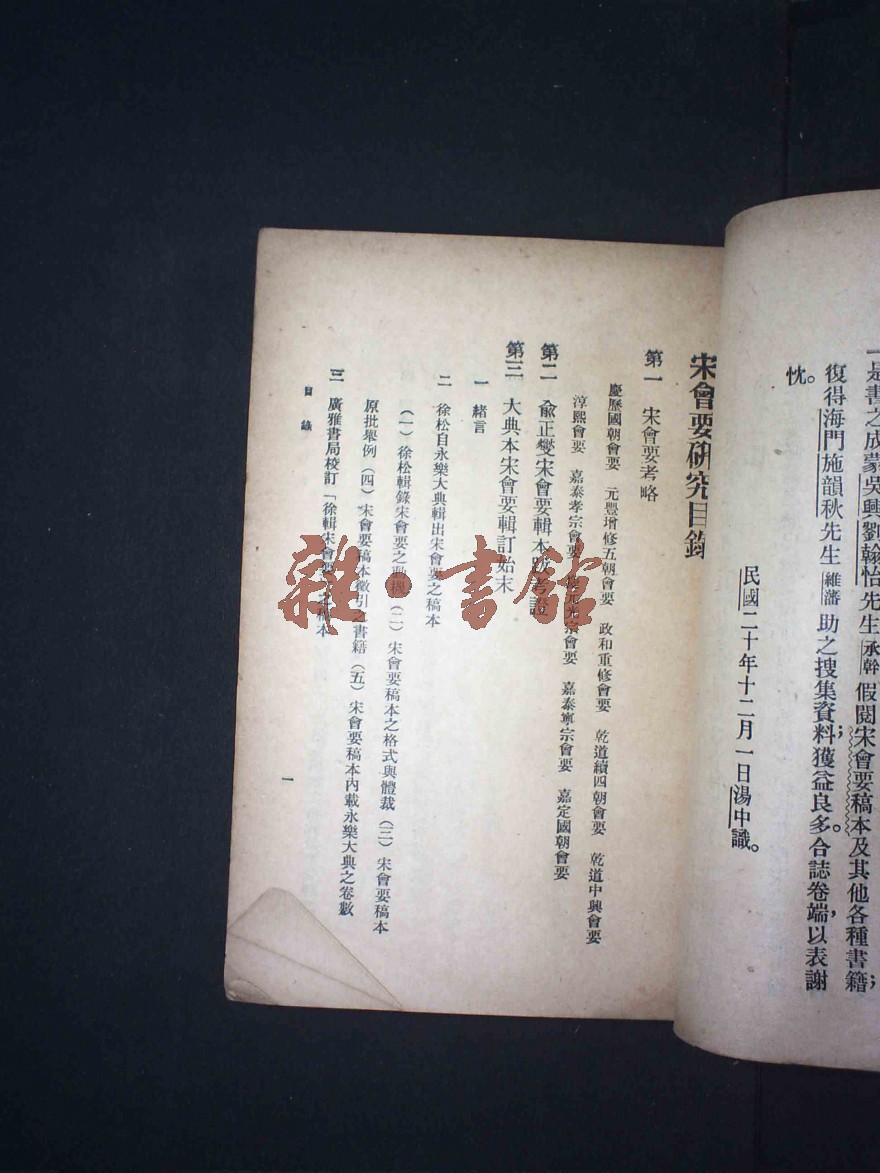 一是書之成蒙吳興劉翰怡先生承幹假閱宋會要稿本及其他各種書籍;
復得海門施韻秋先生維藩助之搜集資料;獲益良多。合誌卷端,以表謝
忱。
民國二十年十二月一日湯中識。
宋會要研究目錄
第一 宋會要考略
慶歷國朝會要 元豐增修五朝會要 政和重修會要 乾道續四朝會要 乾道中興會要
淳熙會要 嘉泰孝宗會要 光宗會要 嘉泰寧宗會要 嘉定國朝會要
第二 俞正燮宋會要輯本
第三 大典本宋會要輯訂始末
一 緒言
二 徐松自永樂大典輯出宋會要之稿本
(一)徐松輯錄宋會要之動機(二)宋會要稿本之格式與體裁(三)宋會要稿本
原批舉例(四)宋會要稿本徵引之書籍(五)宋會要稿本內載永樂大典之卷數
三 廣雅書局校訂「徐輯宋會要」之稿本
目錄
一
雜·書館